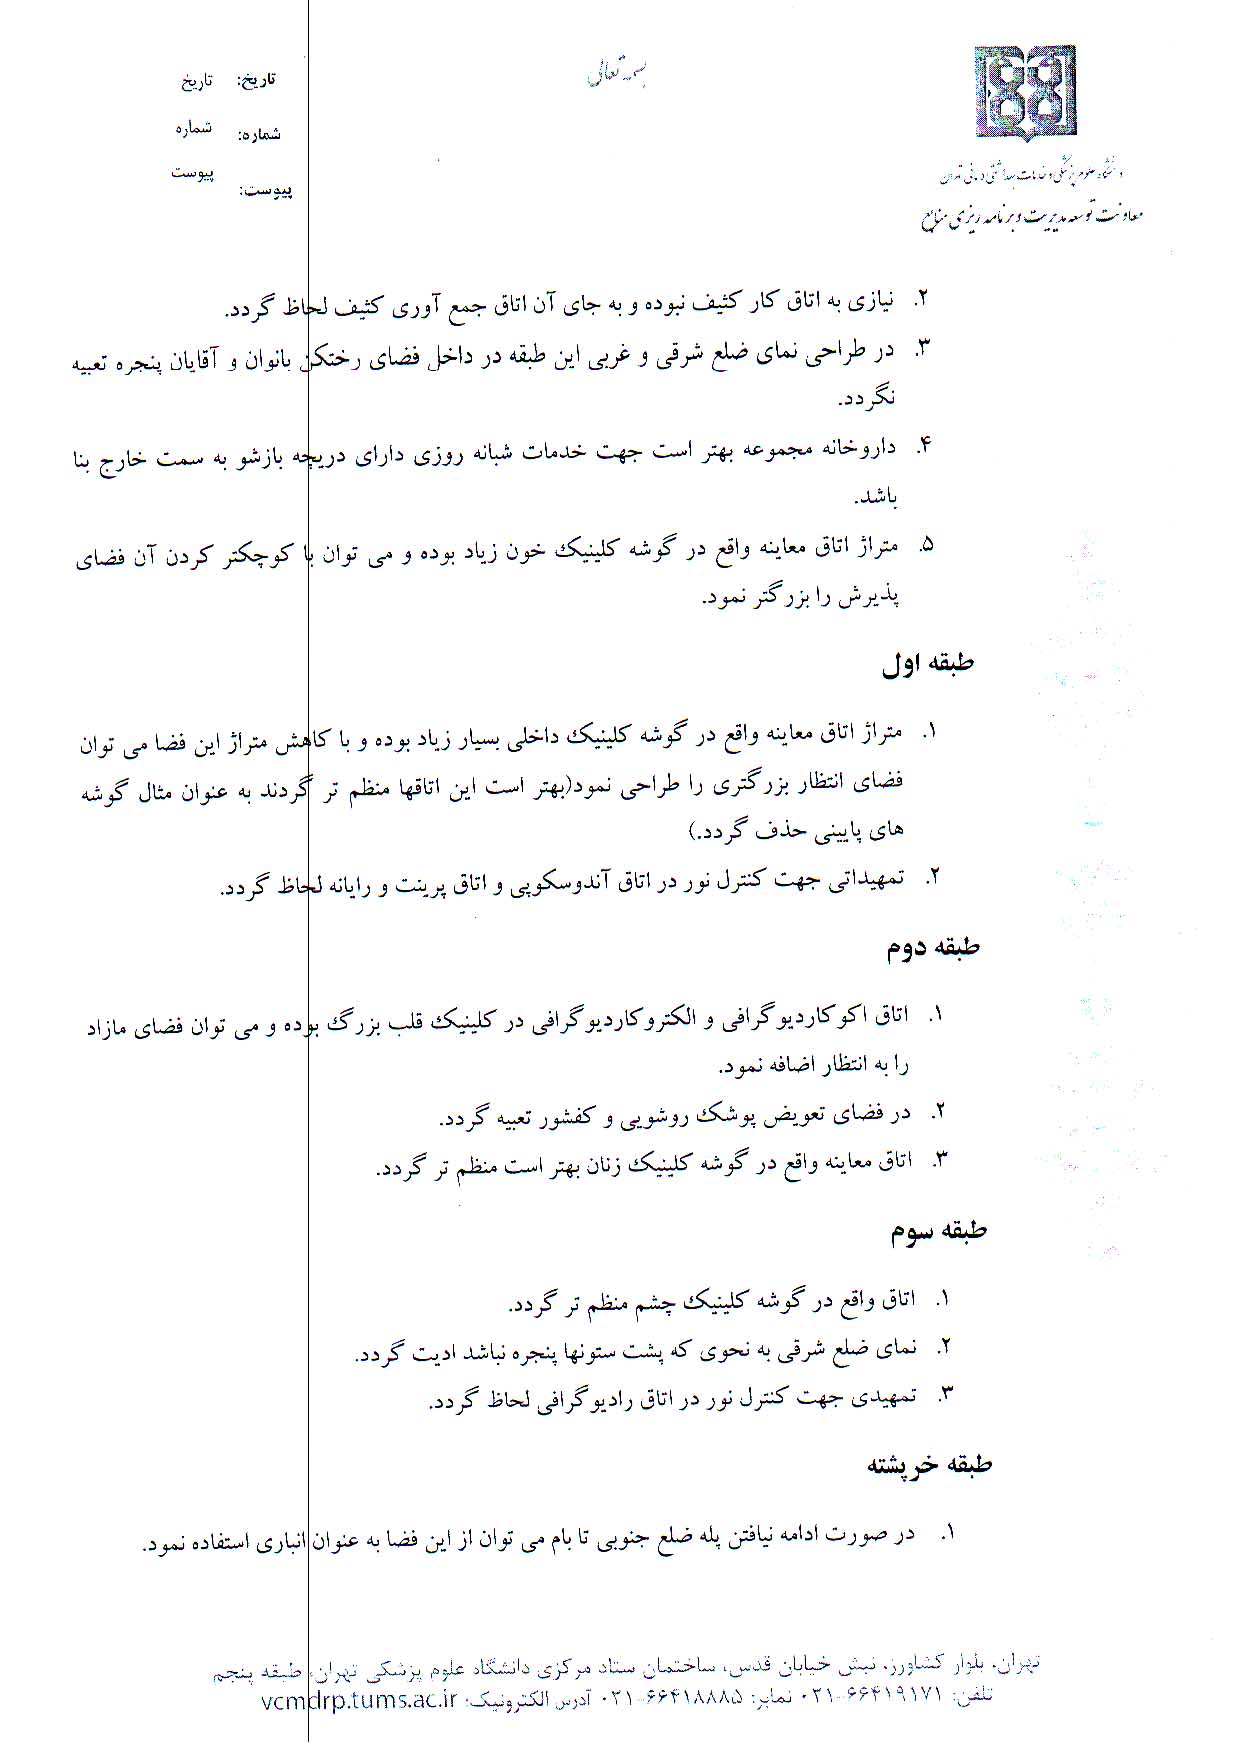 بسمه تعالی
دانشگاه علوم پزشکی و خدمات بهداشتی درمانی تهران
معاونت توسعه مدیریت و برنامه ریزی منابع
تاریخ: تاریخ
شماره: شماره
پیوست: پیوست
۲. نیازی به اتاق کار کثیف نبوده و به جای آن اتاق جمع آوری کثیف لحاظ گردد.
۳. در طراحی نمای ضلع شرقی و غربی این طبقه در داخل فضای رختکن بانوان و آقایان پنجره تعبیه
نگردد.
۴. داروخانه مجموعه بهتر است جهت خدمات شبانه روزی دارای دریچه بازشو به سمت خارج بنا
باشد.
۵. متراژ اتاق معاینه واقع در گوشه کلینیک خون زیاد بوده و می توان با کوچکتر کردن آن فضای
پذیرش را بزرگتر نمود.
طبقه اول
۱. متراژ اتاق معاینه واقع در گوشه کلینیک داخلی بسیار زیاد بوده و با کاهش متراژ این فضا می توان
فضای انتظار بزرگتری را طراحی نمود(بهتر است این اتاقها منظم تر گردند به عنوان مثال گوشه
های پایینی حذف گردد.)
۲. تمهیداتی جهت کنترل نور در اتاق آندوسکوپی و اتاق پرینت و رایانه لحاظ گردد.
طبقه دوم
۱. اتاق اکوکاردیوگرافی و الکتروکاردیوگرافی در کلینیک قلب بزرگ بوده و می توان فضای مازاد
را به انتظار اضافه نمود.
۲. در فضای تعویض پوشک روشویی و کفشور تعبیه گردد.
۳. اتاق معاینه واقع در گوشه کلینیک زنان بهتر است منظم تر گردد.
طبقه سوم
۱. اتاق واقع در گوشه کلینیک چشم منظم تر گردد.
۲. نمای ضلع شرقی به نحوی که پشت ستونها پنجره نباشد ادیت گردد.
۳. تمهیدی جهت کنترل نور در اتاق رادیوگرافی لحاظ گردد.
طبقه خرپشته
۱. در صورت ادامه نیافتن پله ضلع جنوبی تا بام می توان از این فضا به عنوان انباری استفاده نمود.
تهران، بلوار کشاورز، نبش خیابان قدس، ساختمان ستاد مرکزی دانشگاه علوم پزشکی تهران، طبقه پنجم
تلفن: ۶۶۴۱۹۱۷۱-۰۲۱ نمابر: ۶۶۴۱۸۸۸۵-۰۲۱ آدرس الکترونیک: vcmdrp.tums.ac.ir